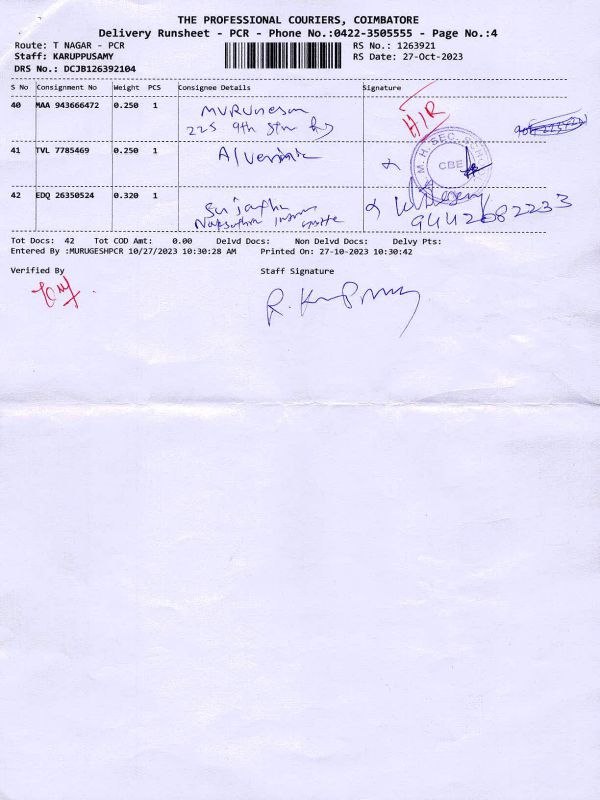 THE PROFESSIONAL COURIERS, COIMBATORE
Delivery Runsheet - PCR - Phone No.:0422-3505555 - Page No.:4
Route: T NAGAR - PCR
RS No.: 1263921
Staff: KARUPPUSAMY
RS Date: 27-Oct-2023
DRS No.: DCJB126392104
S No Consignment No Weight PCS Consignee Details Signature
40 MAA 943666472 0.250 1 Murugesan
225 9th
H/R
41 TVL 7785469 0.250 1 Alvernia
M. H. SEC. SCH.
CBE
42 EDQ 26350524 0.320 1 Sujatha
9442082233
Tot Docs: 42 Tot COD Amt: 0.00 Delvd Docs: Non Delvd Docs: Delvy Pts:
Entered By :MURUGESHPCR 10/27/2023 10:30:28 AM Printed On: 27-10-2023 10:30:42
Verified By Staff Signature